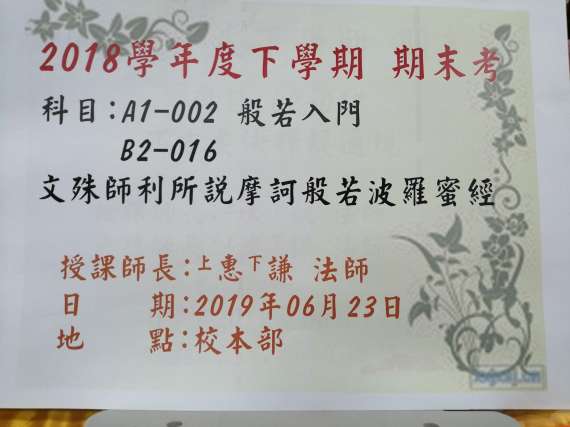 2018學年度下學期 期末考
科目:A1-002 般若入門
B2-016
文殊師利所說摩訶般若波羅蜜經
授課師長:上惠下謙 法師
日 期:2019年06月23日
地 點:校本部